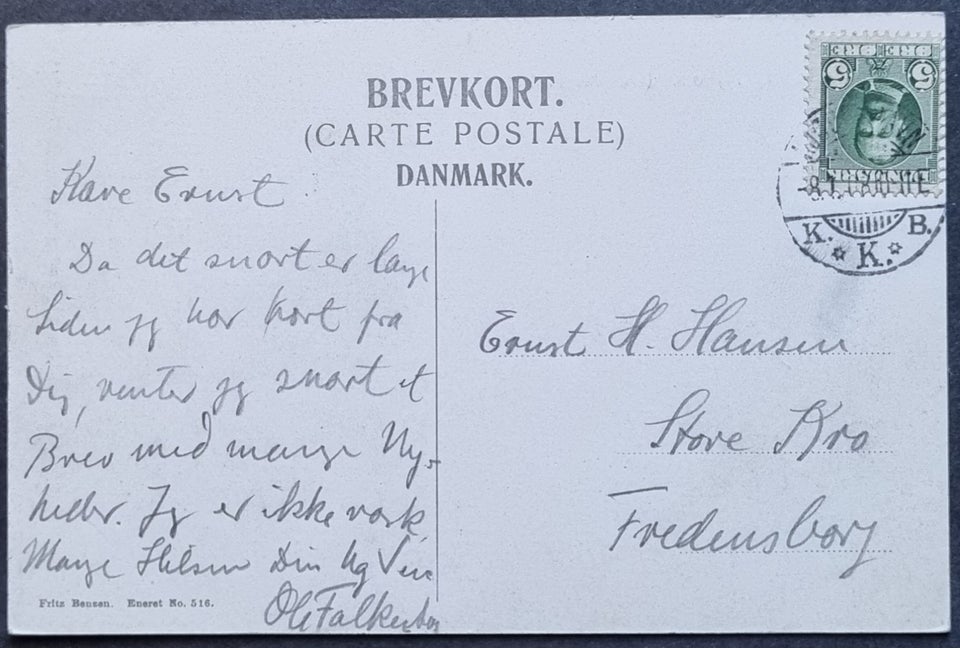 BREVKORT.
(CARTE POSTALE)
DANMARK.
Kære Ernst
Da det snart er længe
siden jeg har hørt fra
Dig, venter jeg snart et
Brev med mange Ny-
heder. Jeg er ikke rask
Mange Hilsen Din Ven
Ole
Fritz Bensen. Eneret No. 516.
Ernst H. Hansen
Store Kro
Fredensborg
5 5
K. K. B.